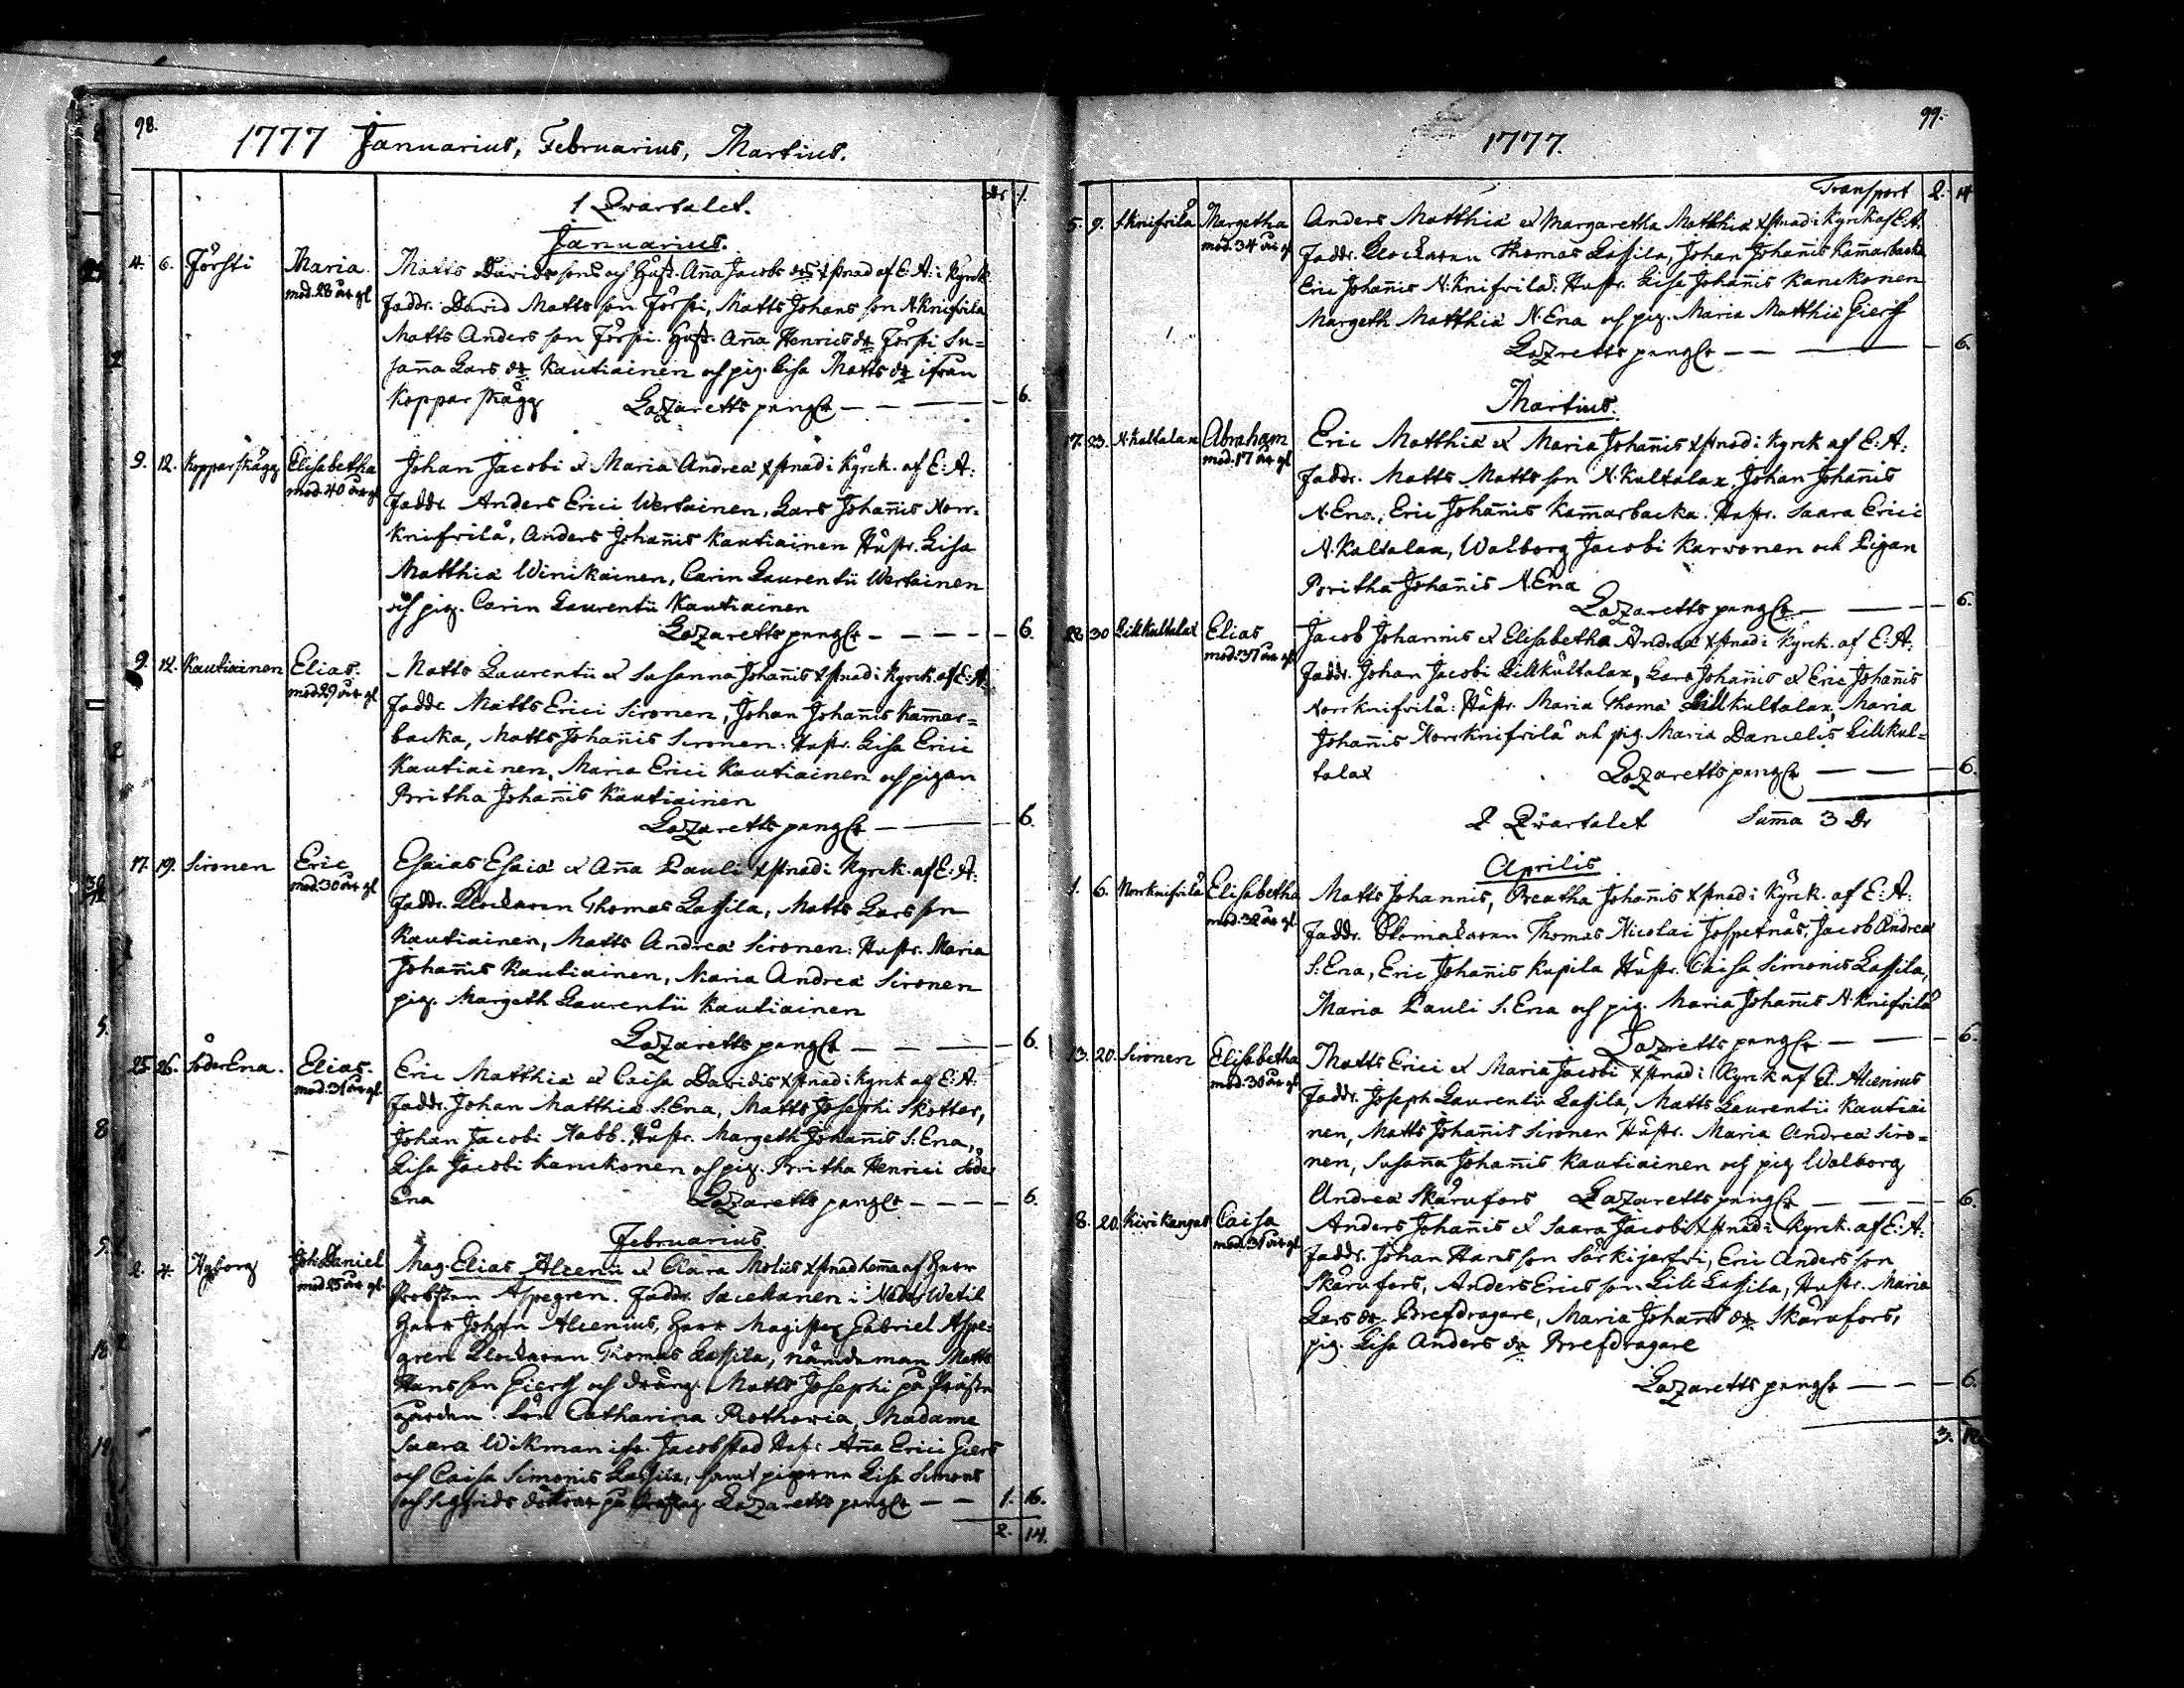 98.
1777 Januarius, Februarius, Martius.
1 Qvartalet.
Januarius.
4. 6. Försti Maria mod. 28 år gl Matts Davids sons och Hust. Aña Jacobs dr xstnad af E: A: i Kyrck
Faddr. David Matts son Försti, Matts Johans son N. Knifvila
Matts Anders son Försti. Hust. Aña Henrics dr Försti Su=
sanna Lars dr Kautiainen och pig. Lisa Matts dr ifrån
Kopparskägg Lazaretts pengr — — — 6.
9. 12. Kopparskägg Elisabetha mod. 40 år gl Johan Jacobi & Maria Andreæ xstnad i Kyrck. af E: A:
Faddr. Anders Erici Wertainen, Lars Johañis Norr=
Knifvilå, Anders Johañis Kautiainen Hustr. Lisa
Matthiæ Winikainen, Carin Laurentii Wertainen
och pig. Carin Laurentii Kautiainen
Lazaretts pengr — — — 6.
9. 12. Kautiainen Elias. mod 29 år gl Matts Laurentii & Susanna Johañis xstnad i Kyrck. af E: A:
Faddr. Matts Erici Sironen, Johan Johañis Kam̃ar=
backa, Matts Johañis Sironen: Hustr. Lisa Erici
Kautiainen, Maria Erici Kautiainen och pigan
Britha Johañis Kautiainen
Lazaretts pengr — — 6.
17. 19. Sironen Eric mod. 30 år gl Esaias Esaiæ & Aña Pauli xstnad i Kyrck. af E: A:
Faddr. Klockaren Thomas Lassila, Matts Lars son
Kautiainen, Matts Andreæ Sironen: Hustr. Maria
Johañis Kautiainen, Maria Andreæ Sironen
pig. Margeth Laurentii Kautiainen
Lazaretts pengr — — — 6.
25. 26. Söder Ena. Elias. mod. 31 år gl. Eric Matthiæ & Caisa Davidis xstnad i Kyrck af E: A:
Faddr. Johan Matthiæ S: Ena, Matts Josephi Skötter,
Johan Jacobi Nabb. Hustr. Margeth Johañis S: Ena,
Lisa Jacobi Kanckonen och pig. Britha Henrici Söder
Ena Lazaretts pengr — — — 6.
Februarius
2. 4. Joh: Daniel mod 25 år gl. Mag. Elias Alcenii & Clara Molliis xstnad hem̃a af Herr
Probsten Aspegren. Faddr. Sacellanen i Neder Wetil
Herr Johan Alcenius, Herr Magister Gabriel Aspe=
gren Klockaren Thomas Lassila, nämdeman Matts
Hans son Gierß och dräng. Matts Josephi på Präste
gården. Catharina Rothovia, Madame
Saara Wikman ifr. Jacobstad Hust: Aña Erici Giers
och Caisa Simonis Lassila, samt pigorna Lisa Simons
och Sigfrids döttrar på Prästeg. Lazaretts pengr — — 1. 16.
2. 14.
99.
1777.
Transport 2. 14
5. 9. S. Knifvilå Margetha mod. 34 år gl Anders Matthiæ & Margaretha Matthiæ xstnad i Kyrck af E: A:
Faddr. Klockaren Thomas Lassila, Johan Johañis Kam̃arbacka
Eric Johañis N: Knifvilå: Hustr. Lisa Johañis Kanckonen
Margeth Matthiæ N. Ena och pig. Maria Matthiæ Gierß
Lazretts pengr — — — 6.
Martius.
17. 23. N. Kultalax Abraham mod. 17 år gl Eric Matthiæ & Maria Johañis xstnad i Kyrck af E: A:
Faddr. Matts Matts son N. Kultalax, Johan Johañis
N. Ena, Eric Johañis Kam̃arbacka. Hustr. Saara Erici
N. Kultalax, Walborg Jacobi Karvonen och Pigan
Britha Johañis N. Ena
Lazaretts pengr — — — 6.
28 30 Lill Kultalax Elias mod. 37 år gl Jacob Johannis & Elisabetha Andreæ xstnad i Kyrck. af E: A:
Faddr. Johan Jacobi Lillkultalax, Lars Johañis & Eric Johañis
Norrknifvilå: Hustr. Maria Thomæ Lillkultalax, Maria
Johañis Norrknifvilå och pig. Maria Danielis Lillkul=
talax Lazaretts pengr — — — 6.
2 Qvartalet Sum̃a 3 dr
Aprilis
1. 6. Norrknifvilå Elisabetha mod. 32 år gl. Matts Johannis, Breatha Johañis xstnad i Kyrck. af E: A:
Faddr. Thomas Nicolai Jospetnäs, Jacob Andreæ
S: Ena, Eric Johañis Kupila Hustr. Caisa Simonis Lassila,
Maria Pauli S. Ena och pig. Maria Johañis N. Knifvilå
Lazretts pengr — — — 6.
13. 20. Sironen Elisabetha mod. 30 år gl. Matts Erici & Maria Jacobi xstnad i Kyrck af El. Alcenius
Faddr. Joseph Laurentii Lassila, Matts Laurentii Kautiai
nen, Matts Johañis Sironen Hustr. Maria Andreæ Siro=
nen, Susanna Johañis Kautiainen och pig Walborg
Andreæ Skårufors Lazaretts pengr — — — 6
8. 20. Kivikangas Caisa mod. 31 år gl Anders Johañis & Saara Jacobi xstnad i Kyrck. af E: A:
Faddr. Johan Hans son Särkijerfvi, Eric Anders son
Skårufors, Anders Erics son Lill Lassila, Hustr. Maria
Lars dr. Brefdragare, Maria Johans dr. Skårufors,
pig. Lisa Anders dr Brefdragare
Lazaretts pengr — — — 6.
3.